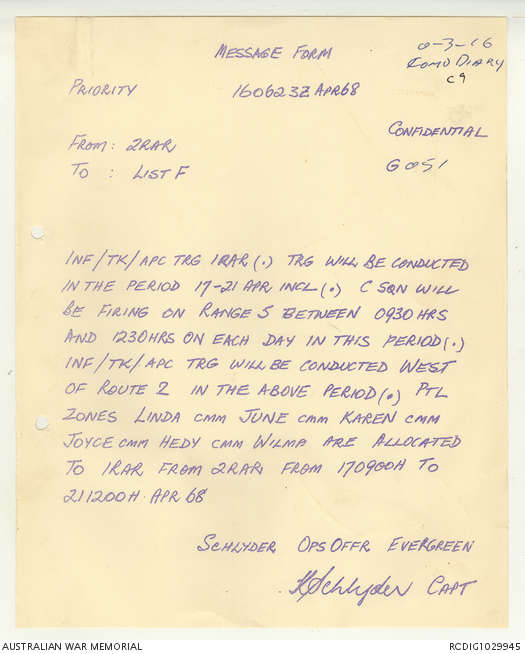 MESSAGE FORM
0-3-16
COMD DIARY
C9
PRIORITY 160623Z APR 68
CONFIDENTIAL
FROM: 2RAR
TO : LIST F
G051
INF/TK/APC TRG 1RAR (.) TRG WILL BE CONDUCTED
IN THE PERIOD 17-21 APR INCL (.) C SQN WILL
BE FIRING ON RANGE 5 BETWEEN 0930 HRS
AND 1230 HRS ON EACH DAY IN THIS PERIOD (.)
INF/TK/APC TRG WILL BE CONDUCTED WEST
OF ROUTE 2 IN THE ABOVE PERIOD (.) PTL
ZONES LINDA CMM JUNE CMM KAREN CMM
JOYCE CMM HEDY CMM WILMA ARE ALLOCATED
TO 1RAR FROM 2RAR FROM 170900H TO
211200H APR 68
SCHLYDER OPS OFFR EVERGREEN
Schlyder CAPT
AUSTRALIAN WAR MEMORIAL RCDIG1029945